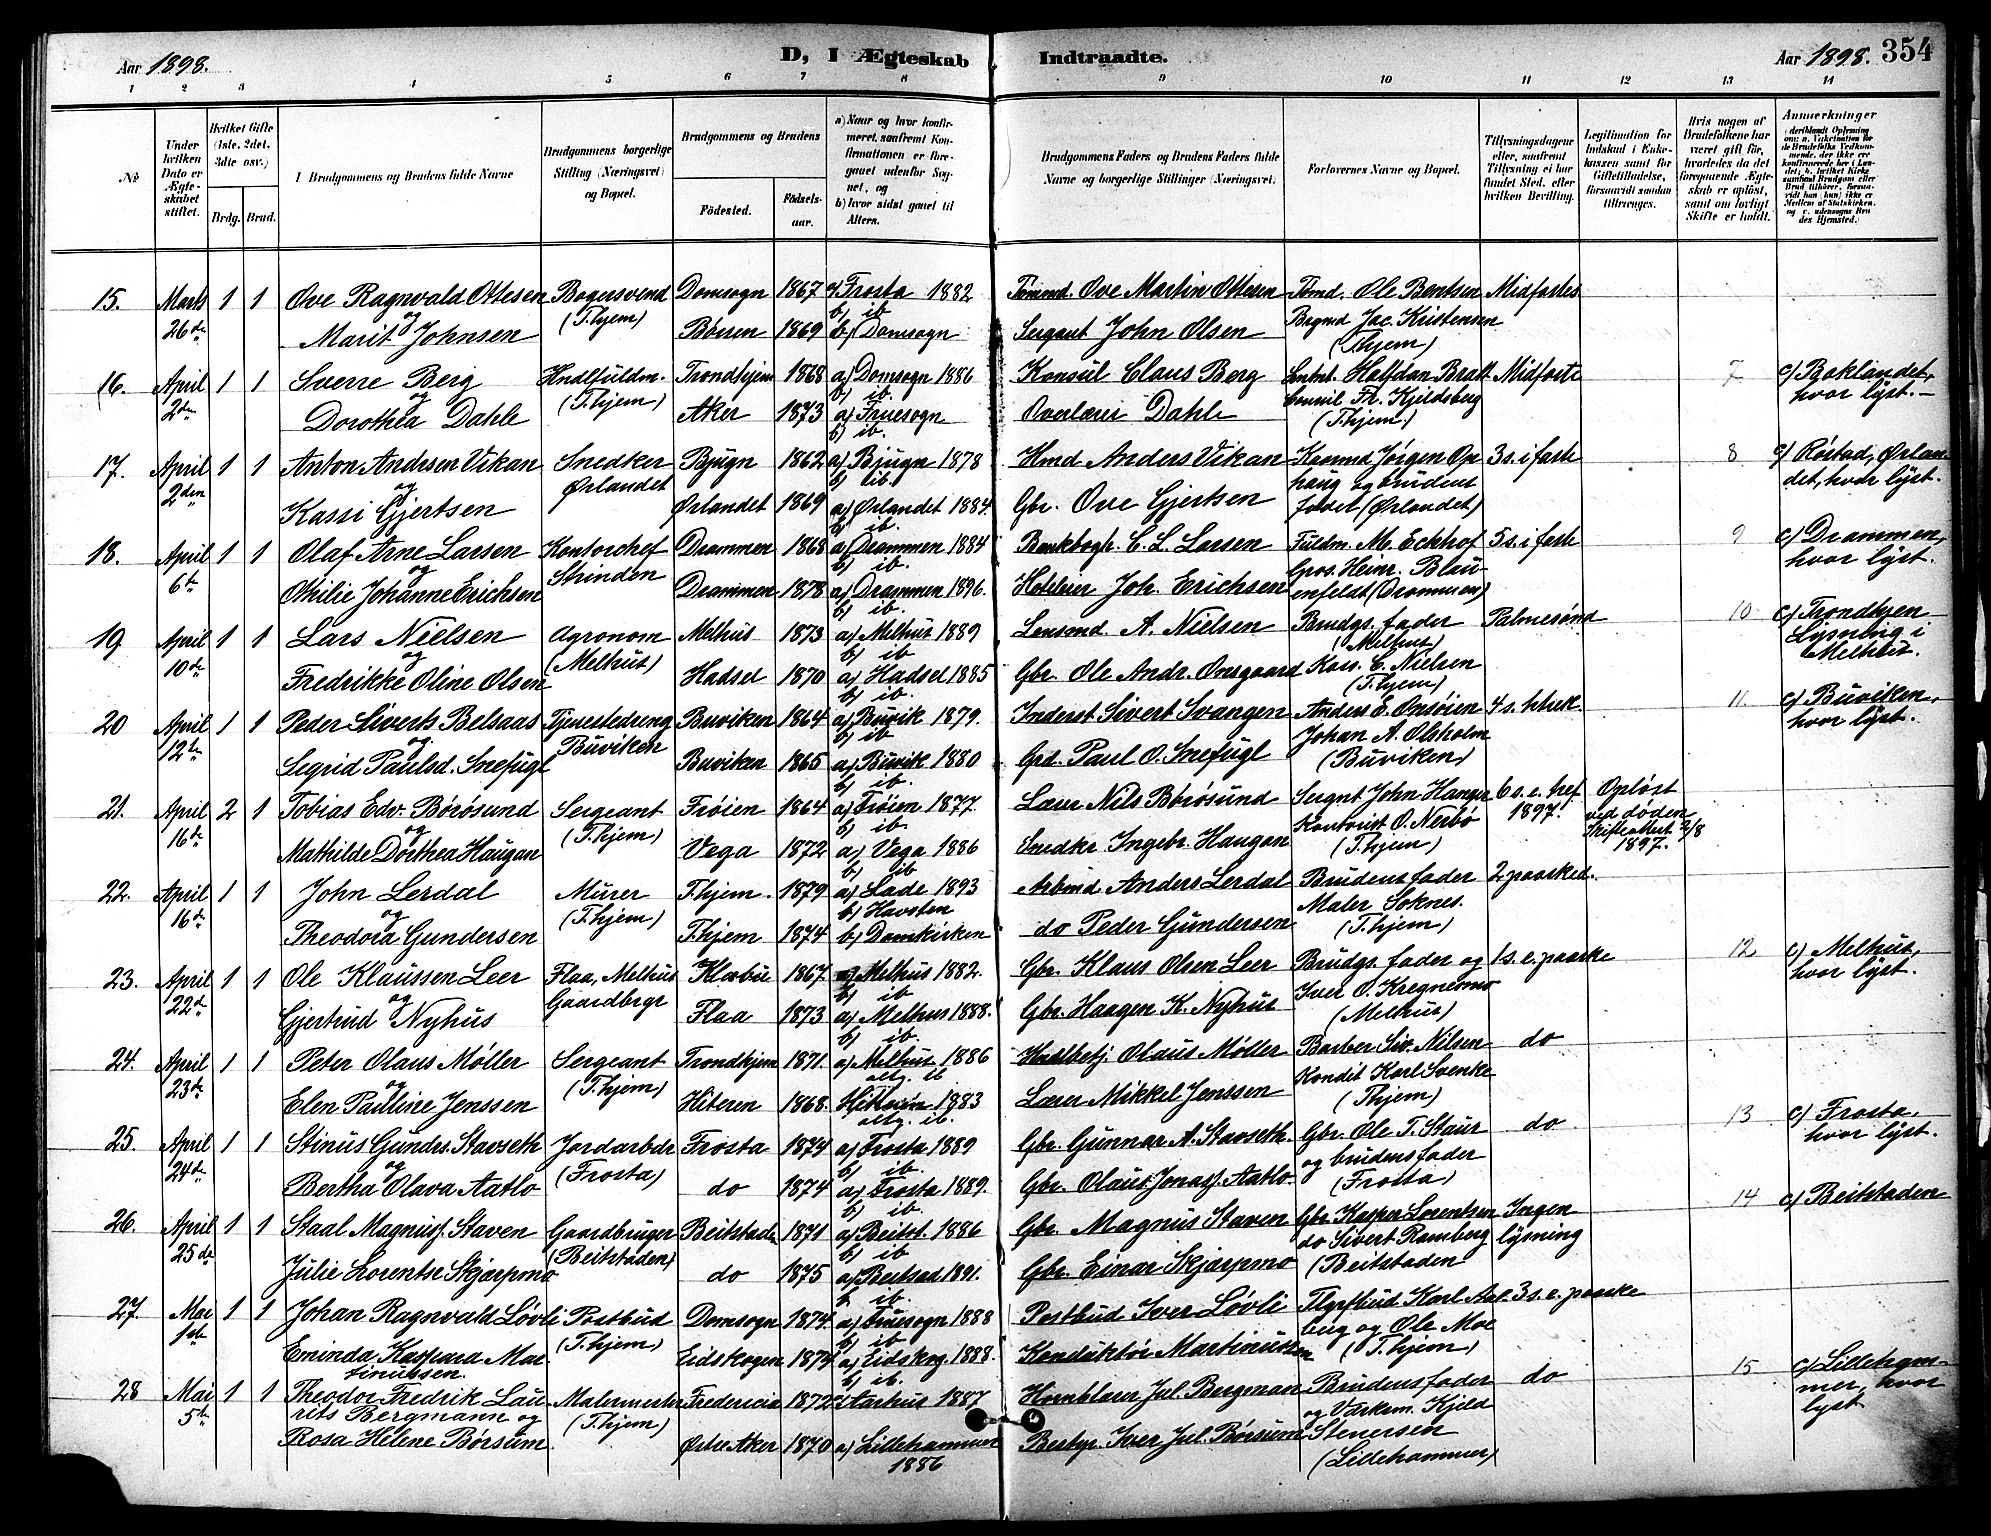 Aar 1898.
D, I Ægteskab Indtraadte.
Aar 1898. 354
1 2 3 4 5 6 7 8 9 10 11 12 13 14
No.
Under hvilken Dato er Ægteskabet stiftet.
Hvilket Gifte (1ste, 2det, 3die osv.)
Brdg. Brud.
Brudgommens og Brudens fulde Navne
Brudgommens borgerlige Stilling (Næringsvei) og Bopæl.
Brudgommens og Brudens
Fødested. Fødselsaar.
a) Naar og hvor konfirmeret, samfremt Konfirmationen er foregaaet udenfor Sognet, og
b) hvor sidst gaaet til Alters.
Brudgommens Faders og Brudens Faders fulde Navne og borgerlige Stillinger (Næringsvei.)
Forlovernes Navne og Bopæl.
Tillysningsdagene eller, samfremt Tillysning ei har fundet Sted, efter hvilken Bevilling.
Legitimation for Indskud i Enkekassen samt for Giftetilladelse, forsaavidt saadan tiltrænges.
Hvis nogen af Brudefolkene har været gift før, hvorledes da det foregaaende Ægteskab er opløst, samt om lovligt Skifte er holdt.
Anmærkninger
15. Marts 26de 1 1 Ove Ragnvald Ottesen Bogersvend Domsogn 1867 a) Frosta 1882 Tømmd. Ove Martin Ottesen Tømd. Ole Bentsen Midfastes
og (T.hjem) b) ib
Marit Johnsen Børsen 1869 b) Domsogn Sergeant John Olsen Brgmd Jac. Kristensen
(T.hjem)
16. April 2den 1 1 Sverre Berg Hndlfuldm. Trondhjem 1868 a) Domsogn 1886 Konsul Claus Berg Halfdan Bratt Midfaste 7 c) Baklandet,
og (T.hjem) b) ib. Consul Fr. Kjeldsberg hvor lyst.
Dorothea Dahle Aker 1873 a) Fruesogn Overlærer Dahle (T.hjem)
b) ib.
17. April 2den 1 1 Anton Andersen Vikan Snedker Bjugn 1862 a) Bjugn 1878 Hmd Anders Vikan Jørgen Op 3 s. i faste 8 c) Røstad, Ørlan
og Ørlandet b) ib. haug og brudens det, hvor lyst.
Kassi Gjertsen Ørlandet 1869 a) Ørlandet 1884. Gbr. Ove Gjertsen (Ørlandet)
b) ib.
18. April 6te 1 1 Olaf Arne Larsen Kontorchef Drammen 1868 a) Drammen 1884 Bankbogh. C. L. Larsen Fuldm. M. Eckhof 5 s. i faste 9 c) Drammen,
og Strinden b) ib. Gros. Heinr. Blau- hvor lyst.
Othilie Johanne Ericksen Drammen 1878 a) Drammen 1896. Hoteleier Joh. Erichsen enfeldt (Drammen)
b) ib.
19 April 10de 1 1 Lars Nielsen Agronom Melhus 1873 a) Melhus 1889 Lensmd. A. Nielsen Brudgs. fader Palmesønd 10 c) Trondhjem
og (Melhus) b) ib (Melhus) Lysning i
Fredrikke Oline Olsen Hadsel 1870 a) Hadsel 1885 Gbr. Ole Andr. Onsgaard Kass. C. Nielsen Melhus.
b) ib. (T.hjem)
20 April 12te 1 1 Peder Siverts. Belsaas Tjenestedreng Buviken 1864 a) Buvik 1879. Inderst Sivert Svangen Anders E. Onsøien 4 s. 11 c) Buviken,
og Buviken b) ib Johan A. Olsholm hvor lyst.
Sigrid Paulsd. Snefugl Buviken 1865 a) Buvik 1880 Grd. Paul O. Snefugl (Buviken)
b) ib.
21. April 16de 2 1 Tobias Edv. Børøsund Sergeant Frøien 1864 a) Frøien 1877. Lærer Nils Børøsund Sergnt John Hanger 6 s. e. tref. Opløst
og (T.hjem) b) ib. Kontorist O. Nerbø 1897. ved døden
Mathilde Dorthea Haugan Vega 1872 a) Vega 1886 Snedkr Ingebr. Haugan (T.hjem) Skifteattest 2/8
b) ib 1897.
22. April 16de 1 1 John Lerdal Murer T.hjem. 1879 a) Lade 1893 Arbmd Anders Lerdal Brudens fader 2 paasked.
og (T.hjem) b) Havsten Maler Soknes.
Theodora Gundersen T.hjem 1874 b) Domkirken do Peder Gundersen (T.hjem)
23. April 22de 1 1 Ole Klaussen Leer Flaa, Melhus Klæbu 1867. a) Melhus 1882. Gbr. Klaus Olsen Leer Brudgs. fader og 1 s. e. paaske 12 c) Melhus,
og Gaardbrgr b) ib Iver O. Kregnesmo hvor lyst.
Gjertrud Nyhus Flaa 1873 a) Melhus 1888. Gbr. Haagen K. Nyhus (Melhus)
b) ib.
24. April 23de 1 1 Peter Olaus Møller Sergeant Trondhjem 1871. a) Melhus 1886 Olaus Møller Barber Siv. Nilsen do
og (T.hjem) altg. ib Kondit Karl Svenke
Elen Pauline Jenssen Hiteren 1868. Hitteren 1883 Lærer Mikkel Jenssen (T.hjem)
altg. ib.
25. April 24de 1 1 Stinus Gunders. Stavseth Jordarbdr Frosta 1874 a) Frosta 1889 Gbr. Gunnar A. Stavseth. Gbr. Ole T. Staur do 13 c) Frosta,
og (Frosta) b) ib. og brudens fader hvor lyst.
Bertha Olava Aatlo do 1874 a) Frosta 1889. Gbr. Olaus Jonass. Aatlo (Frosta)
b) ib.
26. April 25de 1 1 Staal Magnuss. Staven Gaardbruger Beitstaden 1871 a) Beitst. 1886 Gbr. Magnus Staven Gbr. Kasper Lorentsen Ingen 14 c) Beitstaden
(Beitstaden) b) ib do Sivert Ramberg lysning
Julie Lorentse Skjærpmo do 1875 a) Beitstad 1891. Gbr. Einar Skjærpmo (Beitstaden
b) ib.
27. Mai 1ste 1 1 Johan Ragnvald Løvli Postbud Domsogn 1874. a) Fruesogn 1888 Postbud Iver Løvli Tlgrfbud Karl Aal- 3 s. e. paaske
og (T.hjem) b) ib berg og Ole Moe
Eminda Kaspara Mar- Eidskogen 1874 a) Eidskog. 1888. Konduktør Martinussen (T.hjem)
tinussen. b) ib.
28 Mai 5te 1 1 Theodor Fredrik Lau- Malermester Fredericia 1872 a) Aarhus 1887 Hornblæser Jul. Bergman Brudens fader do 15 c) Lilleham-
rits Bergmann og (T.hjem) og Værksm. Kjeld mer, hvor
Rosa Helene Børsum. Østre Aker 1870 a) Lillehammer Bestyr. Iver Jul. Børsum Stenersen lyst
1886 (Lillehammer)